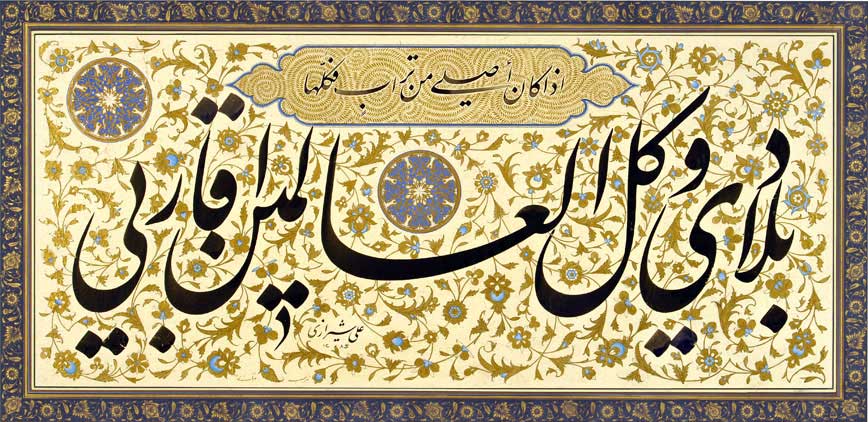 اذا كان أصلي من تراب فكلها
بلادي وكل العالمين اقاربي
علی شیرازی